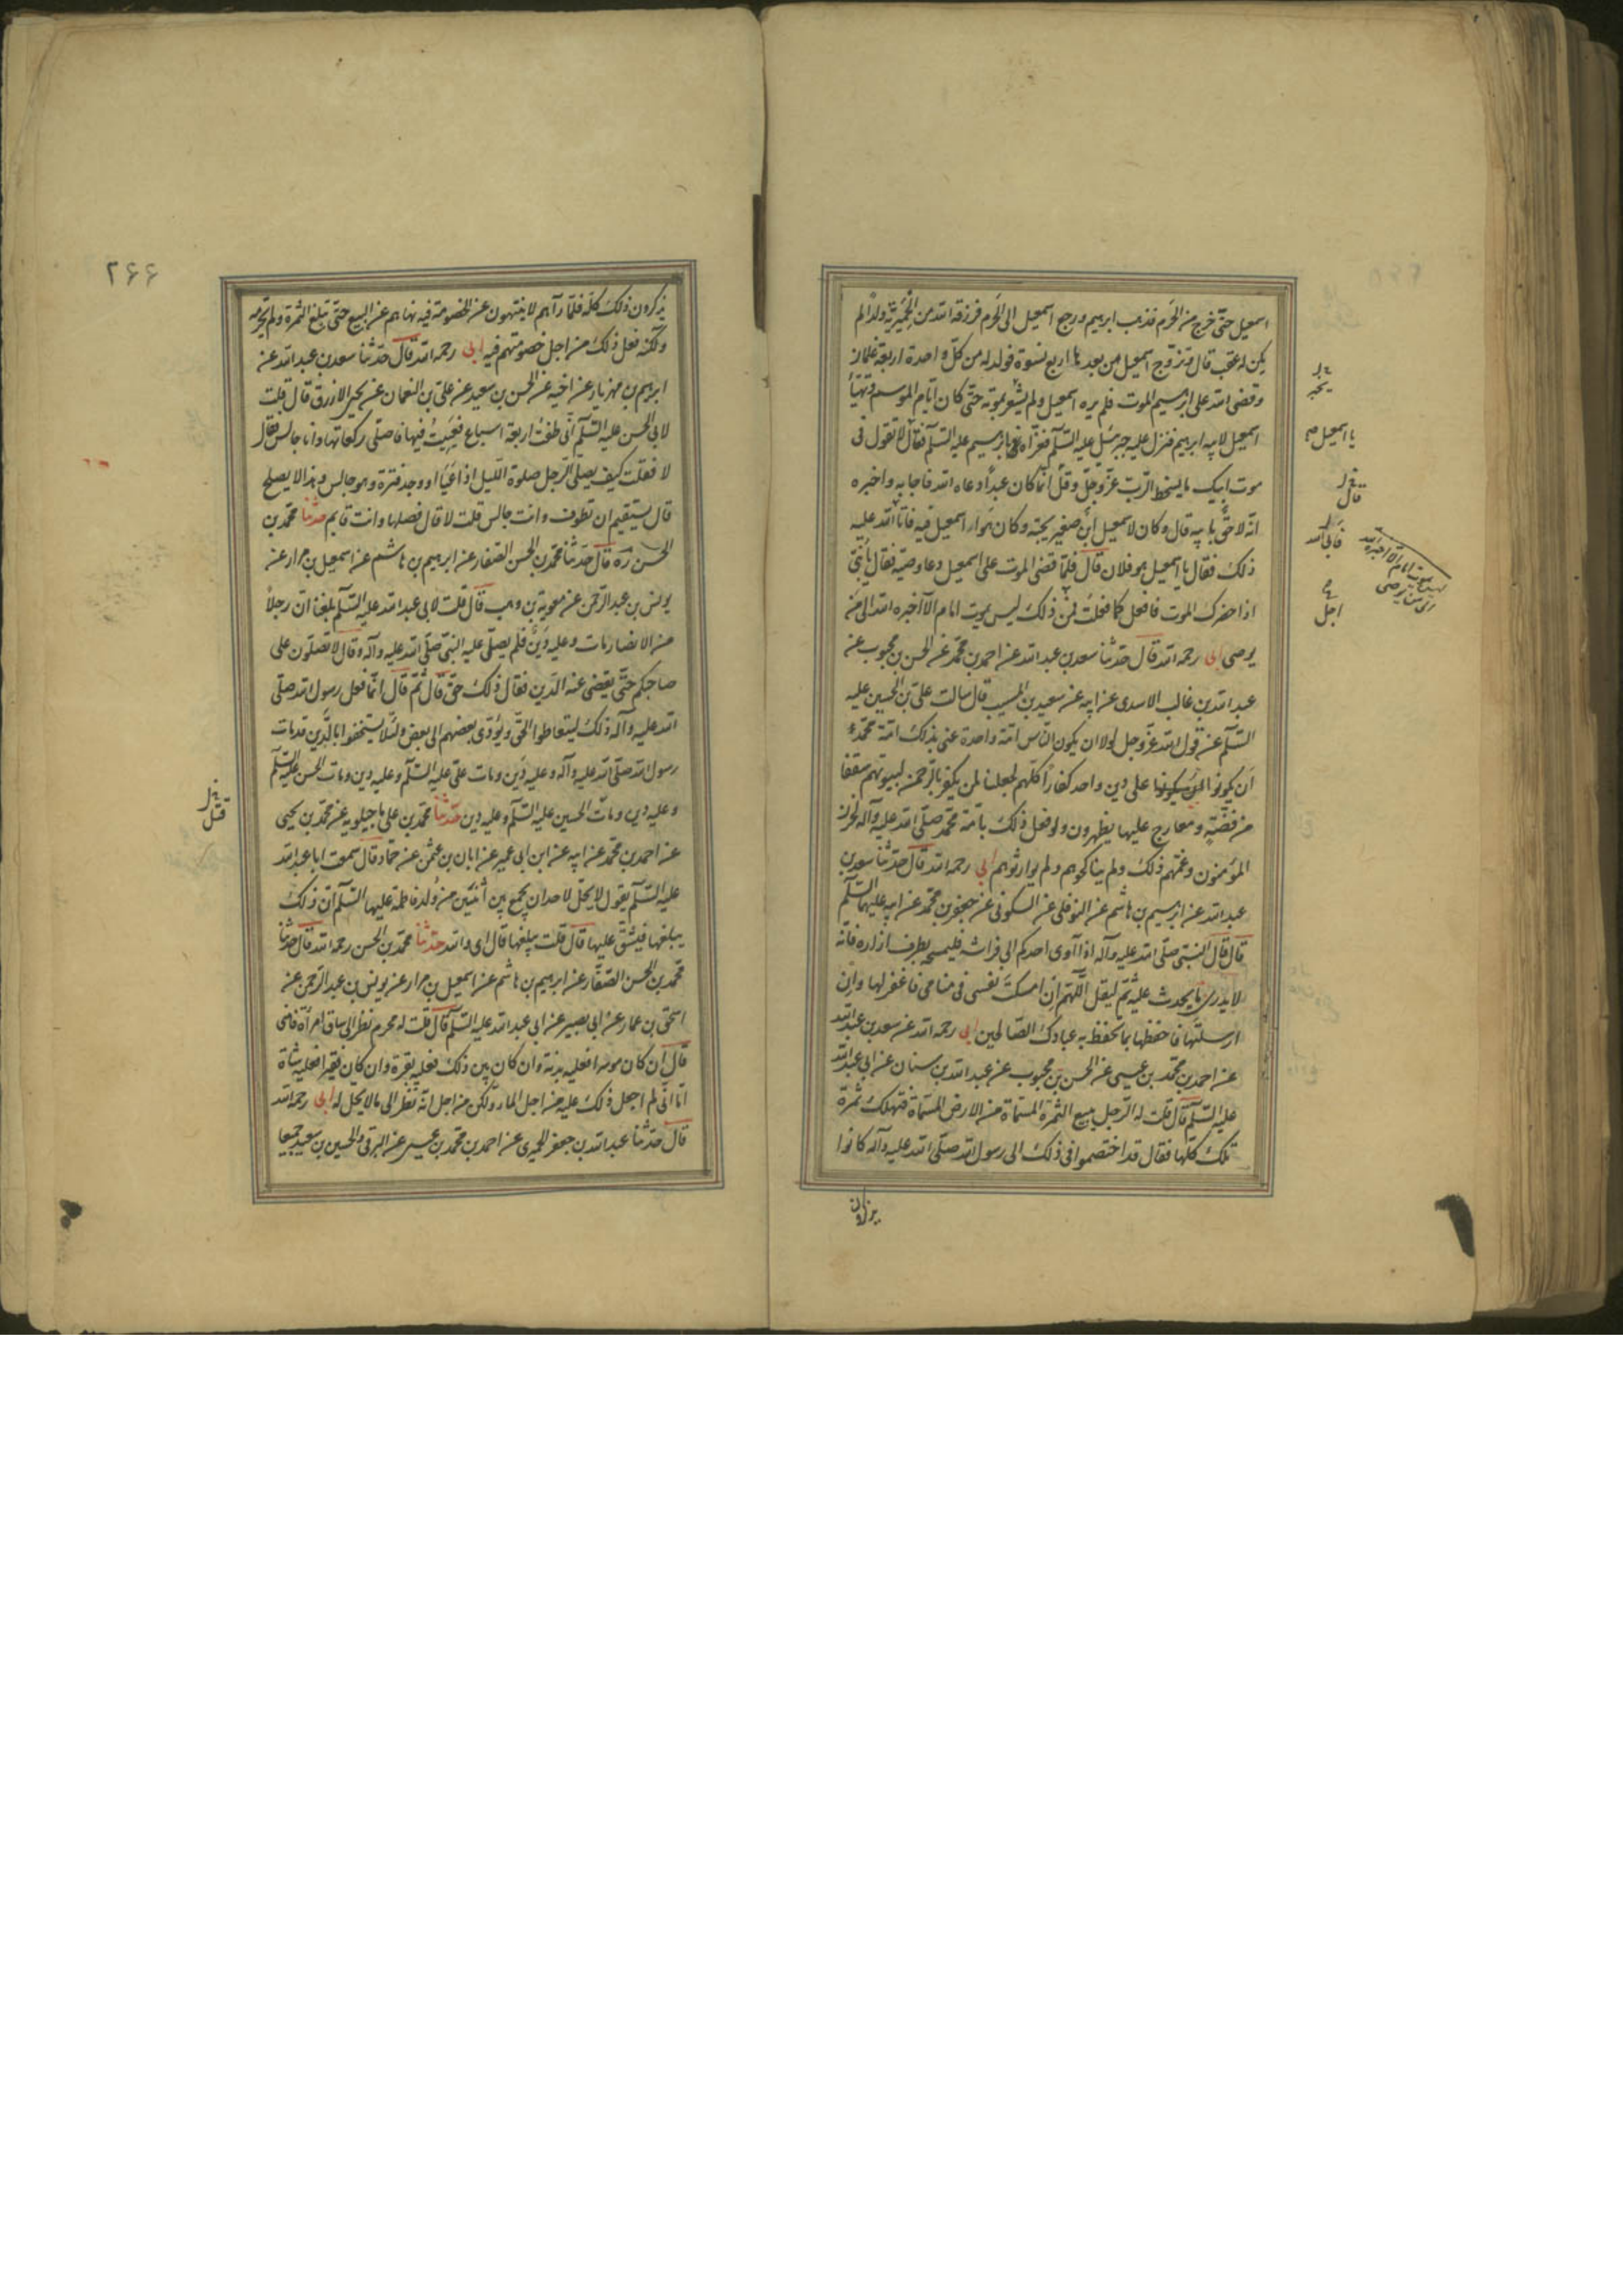 اسمعيل حتّى خرج من الحرم فذهب ابرهيم ورجع اسمعيل الى الحرم فرزقه الله من الحميريّة ولداً لم
يكن له عقب قال وتزوّج اسمعيل من بعدها اربع نسوة فولد له من كلّ واحدة اربعة غلمان
وقضى الله على ابرهيم الموت فلم يره اسمعيل ولم يشعر بموته حتّى كان ايّام الموسم وتهيّأ
اسمعيل لابيه ابرهيم فنزل عليه جبرئيل عليه السّلم فعزّاه بابرهيم عليه السّلم فقال لا تقول فى
موت ابيك ما يسخط الربّ عزّ وجلّ وقل انّما كان عبداً دعاه الله فاجابه واخبره
انّه لاحق بابيه قال وكان لاسمعيل ابن صغير يحبّه وكان هوا اسمعيل فيه فاتا الله عليه
ذلك فقال يا اسمعيل هو فلان قال فلمّا قضى الموت على اسمعيل دعا وصيّه فقال يا بنىّ
اذا حضرك الموت فافعل كما فعلت فمن ذلك ليس يموت امام الّا اخبره الله الى من
يوصى ابى رحمه الله قال حدّثنا سعد بن عبد الله عن احمد بن محمّد عن الحسن بن محبوب عن
عبد الله بن غالب الاسدى عن ابيه عن سعيد بن المسيب قال سالت علىّ بن الحسين عليه
السّلم عن قول الله عزّ وجل لولا ان يكون النّاس امّة واحدة عنى بذلك امّة محمّد
ان يكونوا على دين واحد كفاراً كلّهم لجعلنا لمن يكفر بالرّحمن لبيوتهم سقفا
من فضّة ومعارج عليها يظهرون ولو فعل ذلك بامّة محمّد صلّى الله عليه وآله لحزن
المؤمنون وغمّهم ذلك ولم يناكحوهم ولم يوارثوهم ابى رحمه الله قال حدّثنا سعد بن
عبد الله عن ابرهيم بن هاشم عن النوفلى عن السكونى عن جعفر بن محمّد عن ابيه عليهما السّلم
قال قال النبىّ صلّى الله عليه وآله اذا آوى احدكم الى فراشه فليمسحه بطرف ازاره فانّه
لا يدرى ما يحدث عليه ثمّ ليقل اللّهم ان امسكت نفسى فى منامى فاغفر لها وان
ارسلتها فاحفظها بما تحفظ به عبادك الصّالحين ابى رحمه الله عن سعد بن عبد الله
عن احمد بن محمّد بن عيسى عن الحسن بن محبوب عن عبد الله بن سنان عن ابى عبد الله
عليه السّلم قال قلت له الرّجل يبيع الثمرة المسمّاة من الارض المسمّاة فتهلك ثمرة
تلك كلّها فقال قد اختصموا فى ذلك الى رسول الله صلّى الله عليه وآله كانوا
يا اسمعيل
قال
فابى الله
اجل
٢٦٦
يذكرون ذلك كلّه فلمّا رآهم لا ينتهون عن الخصومة فيه نهاهم عن البيع حتّى تبلغ الثمرة ولم يحرّمه
ولكنّه فعل ذلك من اجل خصومتهم فيه ابى رحمه الله قال حدّثنا سعد بن عبد الله عن
ابرهيم بن مهزيار عن اخيه عن الحسن بن سعيد عن علىّ بن النعمان عن يحيى الازرق قال قلت
لابى الحسن عليه السّلم انّى طفت اربعة اسباع فعييت فيها فاصلّى ركعاتها وانا جالس فقال
لا فقلت كيف يصلّى الرّجل صلوة اللّيل اذا عَيىَ او وجد فترة وهو جالس وهذا لا يصلح
قال يستقيم ان تطوف وانت جالس قلت لا قال فصلها وانت قايم حدّثنا محمّد بن
الحسن ره قال حدّثنا محمّد بن الحسن الصّفار عن ابرهيم بن هاشم عن اسمعيل بن مرار عن
يونس بن عبد الرّحمن عن معوية بن وهب قال قلت لابى عبد الله عليه السّلم بلغنا انّ رجلاً
من الانصار مات وعليه دَين فلم يصلّ عليه النبىّ صلّى الله عليه وآله وقال لا تصلّون على
صاحبكم حتّى يقضى عنه الدّين فقال ذلك حقّ قال ثمّ قال انّما فعل رسول الله صلّى
الله عليه وآله ذلك ليتعاطوا الحقّ ويؤدّى بعضهم الى بعض ولئلّا يستخفوا بالدّين قد مات
رسول الله صلّى الله عليه وآله وعليه دَين ومات علىّ عليه السّلم وعليه دين ومات الحسن عليه السّلم
وعليه دين ومات الحسين عليه السّلم وعليه دين حدّثنا محمّد بن على ماجيلويه عن محمّد بن يحيى
عن احمد بن محمّد عن ابيه عن ابن ابى عمير عن ابان بن عثمن عن حمّاد قال سمعت ابا عبد الله
عليه السّلم يقول لا يحلّ لاحد ان يجمع بين اثنتين من وُلد فاطمة عليها السّلم انّ ذلك
يبلغها فيشقّ عليها قال قلت يبلغها قال اى والله حدّثنا محمّد بن الحسن رحمه الله قال حدّثنا
محمّد بن الحسن الصّفّار عن ابرهيم بن هاشم عن اسمعيل بن مرار عن يونس بن عبد الرّحمن عن
اسحق بن عمار عن ابى بصير عن ابى عبد الله عليه السّلم قال قلت له محرم نظر الى ساق امرأة فامنى
قال ان كان موسرا فعليه بدنة وان كان بين ذلك فعليه بقرة وان كان فقيرا فعليه شاة
اما انّى لم اجعل ذلك عليه من اجل الماء ولكن من اجل انّه نظر الى ما لا يحل له ابى رحمه الله
قال حدّثنا عبد الله بن جعفر الحميرى عن احمد بن محمّد بن عيسى عن البرقى والحسين بن سعيد جميعا
قتل